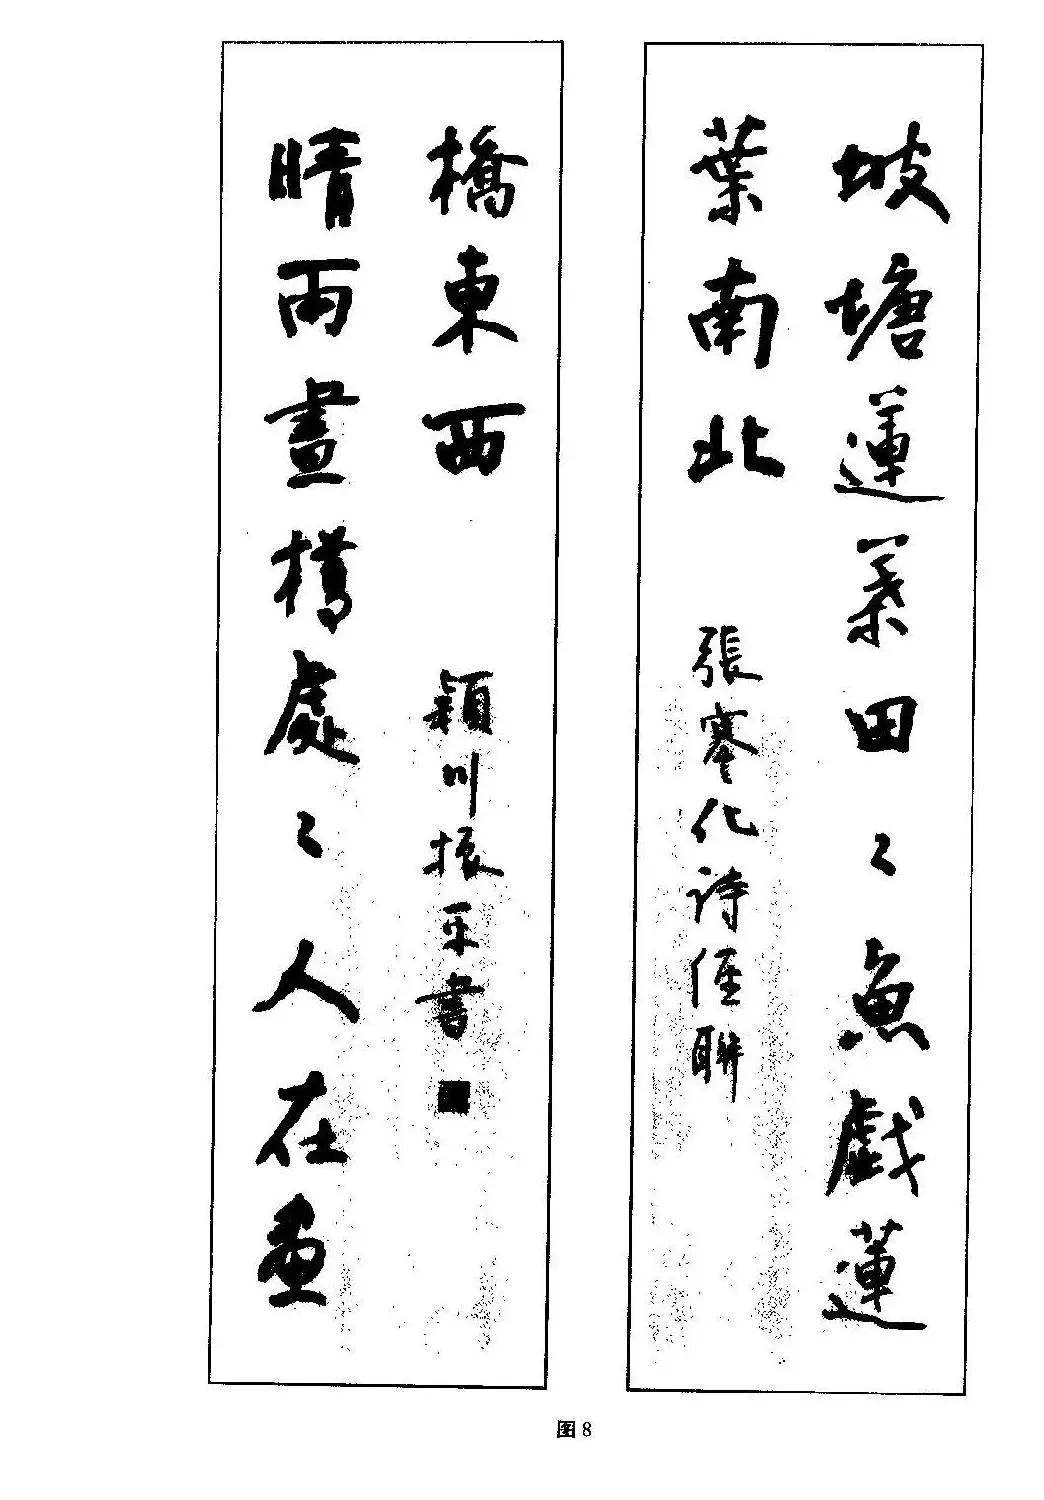 坡塘蓮葉田〻魚戲蓮
葉南北
張謇化詩聯
晴雨畫橋處〻人在畫
橋東西
穎川振書
图8